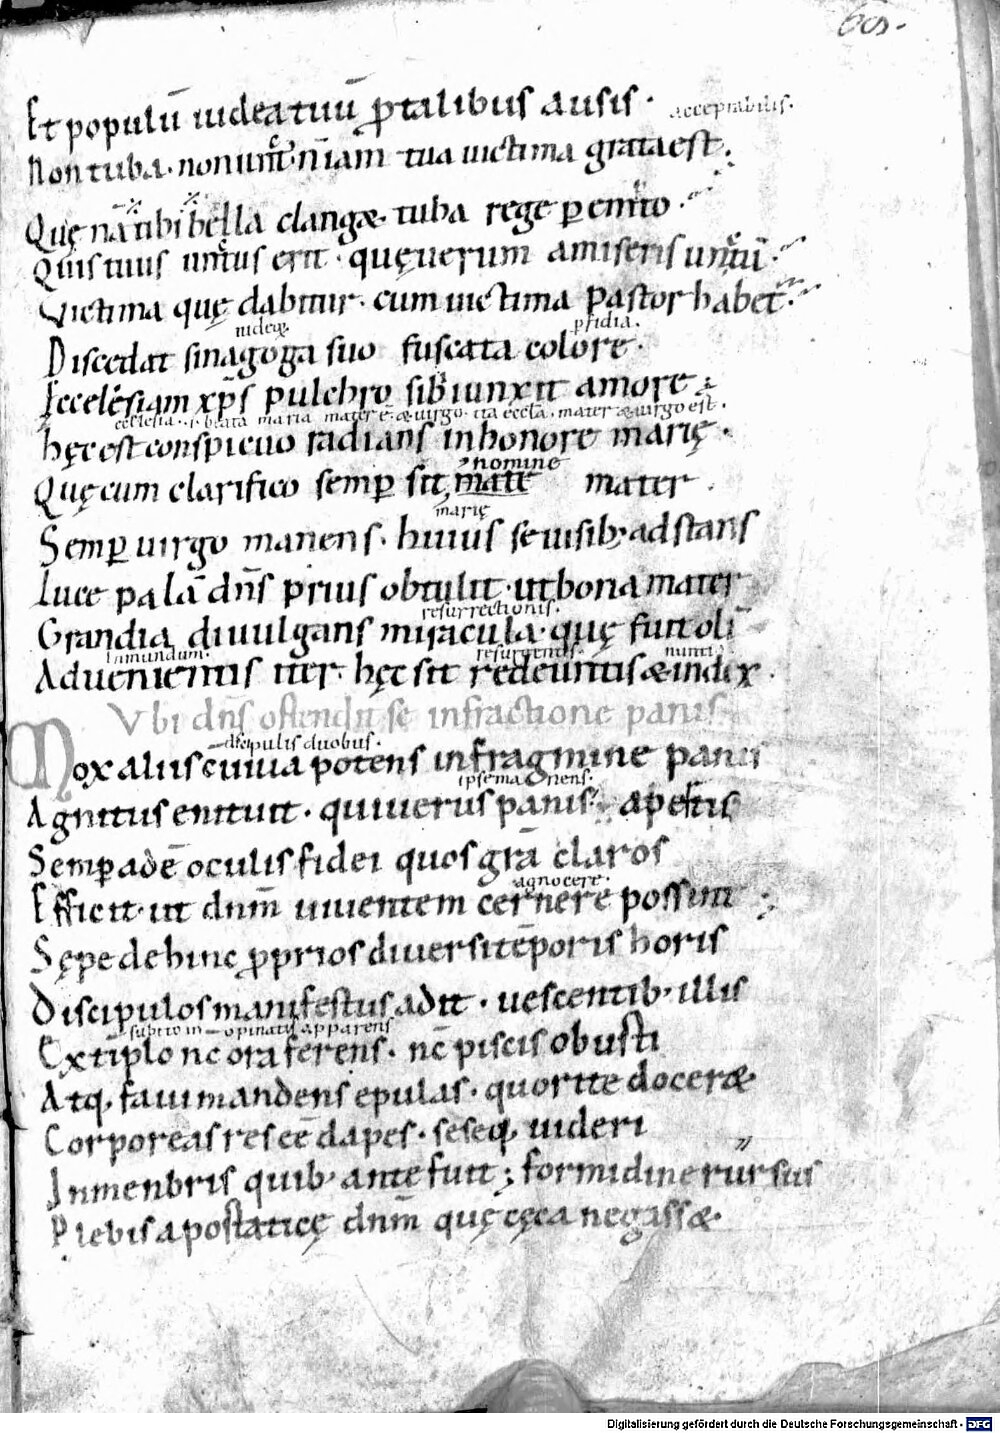 60.
Et populū iudea tuū ꝓ talibus ausis.
acceptabilis.
Non tuba. non unct. niam tua uictima grata est.
Quę nā tibi bella clangæ. tuba rege perempto.
Quis tuus unctus erit. quę uerum amiseris unctū.
Victima quę dabitur. cum uictima pastor habet.
iudeæ. pfidia.
Discedat sinagoga suo fuscata colore.
Ecclesiam xp̄s pulchro sibi iunxit amore.
ecclesia. .i. beata maria mater ē & uirgo. ita eccla. mater & uirgo est.
Hęc est conspicuo radians in honore marię.
nomine
Quę cum clarifico semp sit mate mater.
marię
Semp uirgo manens. huius se uisib; adstans
Luce palā dn̄s prius obtulit. ut bona mater
resurrectionis.
Grandia diuulgans miracula. quę fuit olī
In mundum. resurgentis. nunti
Aduenientis iter. hęc sit redeuntis & index.
Vbi dn̄s ostendit se in fractione panis.
discipulis duobus.
Mox aliis cuiua potens in fragmine panis
ipse manens.
Agnitus enituit. qui uerus panis. apertis
Semp adē oculis fidei quos grā claros
agnocere.
Efficit. ut dnm̄ uiuentem cernere possint;
Sępe dehinc ꝓprios diuersi tēporis horis
Discipulos manifestus adit. uescentib; illis
subito inopinatus apparens
Extiplo nc̄ ora ferens. nc̄ piscis obusti
Atq; faui mandens epulas. quo rite doceræ
Corporeas res eē dapes. seseq; uideri
In menbris quib; ante fuit; formidine rursus
Plebis apostaticę dnm̄ quę cęca negassæ.
Digitalisierung gefördert durch die Deutsche Forschungsgemeinschaft - DFG